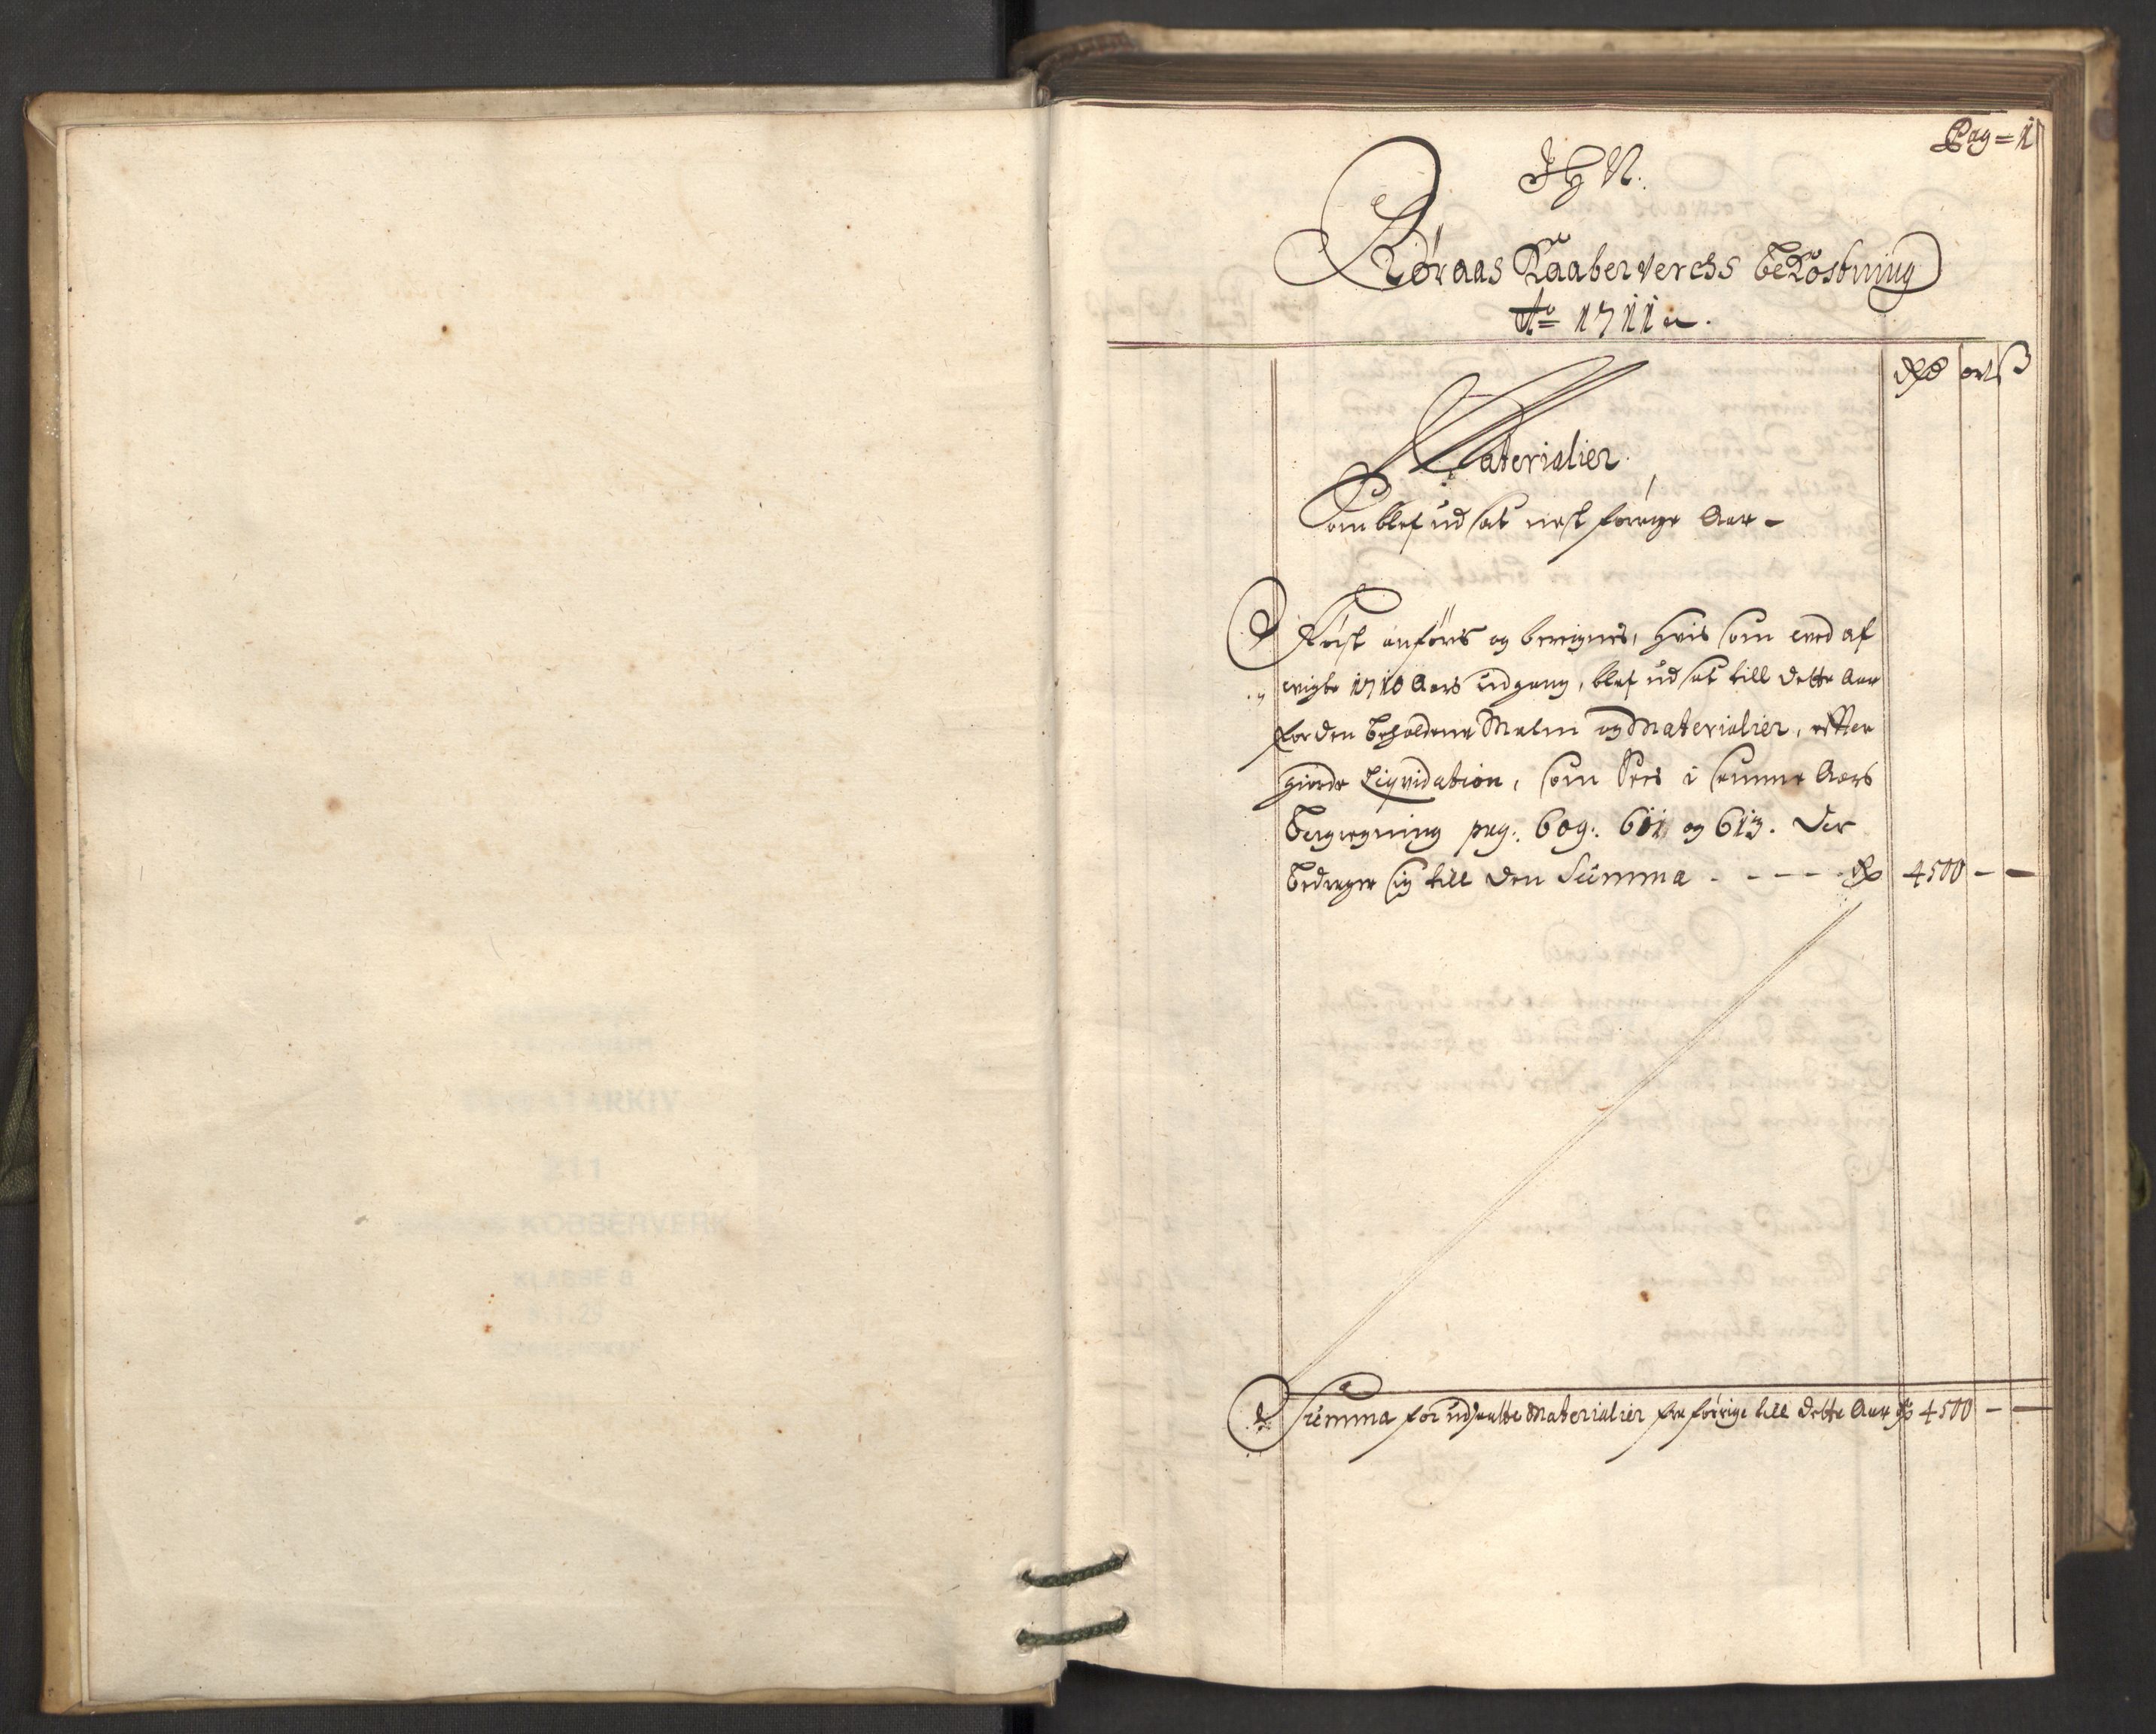 Pag = 1
J H N.
Røraas Kaaberverchs Bekostning
Ao 1711
Rdr ort ß
Materialier.
Som blef udsat nest forige Aar -
Først anføris og beregnes, hvis som ved af
vigte 1710 Aars udgang, blef udsat till dette Aar
for den beholdene Malm og Materialier, efter
giorde Liqvidation, som sees i samme Aars
Bergregning pag: 609: 611 og 613. Der
Bedrager sig till den Summa - - - - - Rdr 4500 - -
Summa for udsatte Materialier fra forige till dette Aar Rdr 4500 - -
KOBBERVERK